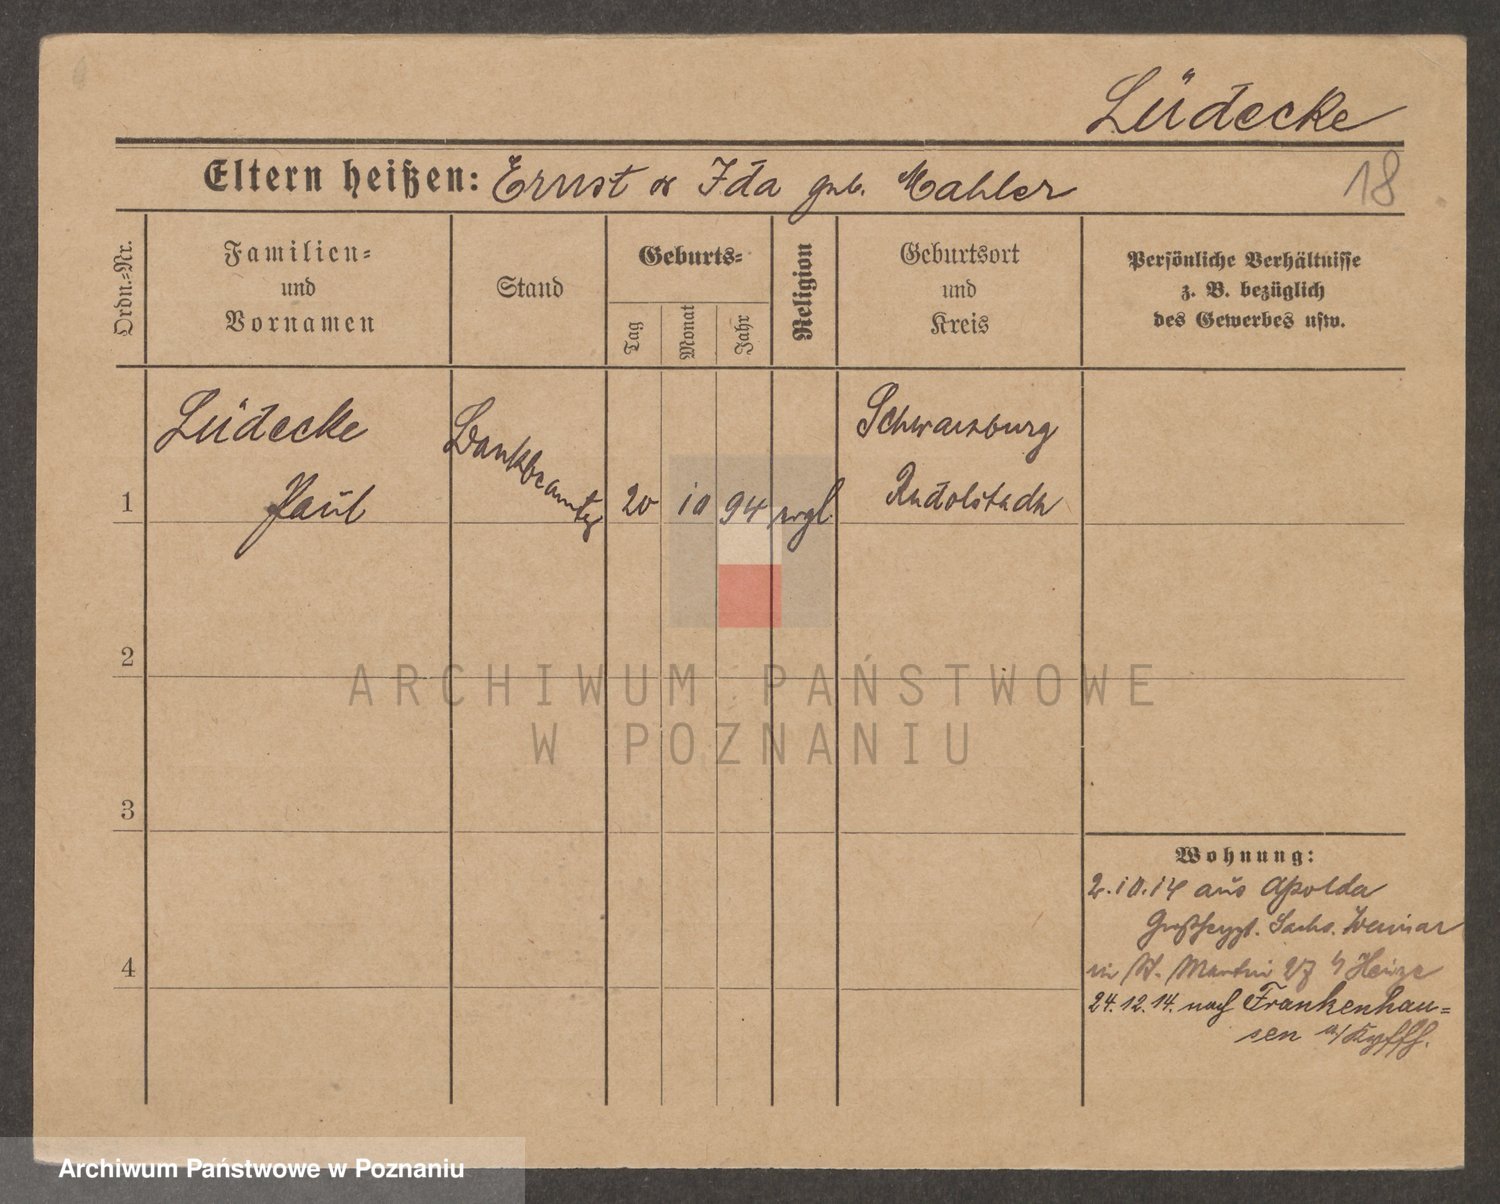 Lüdecke
Eltern heißen: Ernst & Ida geb. Mahler
18
Ordn.-Nr.
Familien-
und
Vornamen
Stand
Geburts-
Tag
Monat
Jahr
Religion
Geburtsort
und
Kreis
Persönliche Verhältnisse
z. B. bezüglich
des Gewerbes usw.
1
Lüdecke
Paul
Bankbeamter
20
10
94
evgl.
Schwarzburg
Rudolstadt
2
3
4
Wohnung:
2.10.14 aus Apolda
Großherzgt. Sachs. Weimar
in St. Martin 27 b/ Heinze
24.12.14. nach Frankenhau=
sen a/ Kyffh.
ARCHIWUM PAŃSTWOWE
W POZNANIU
Archiwum Państwowe w Poznaniu